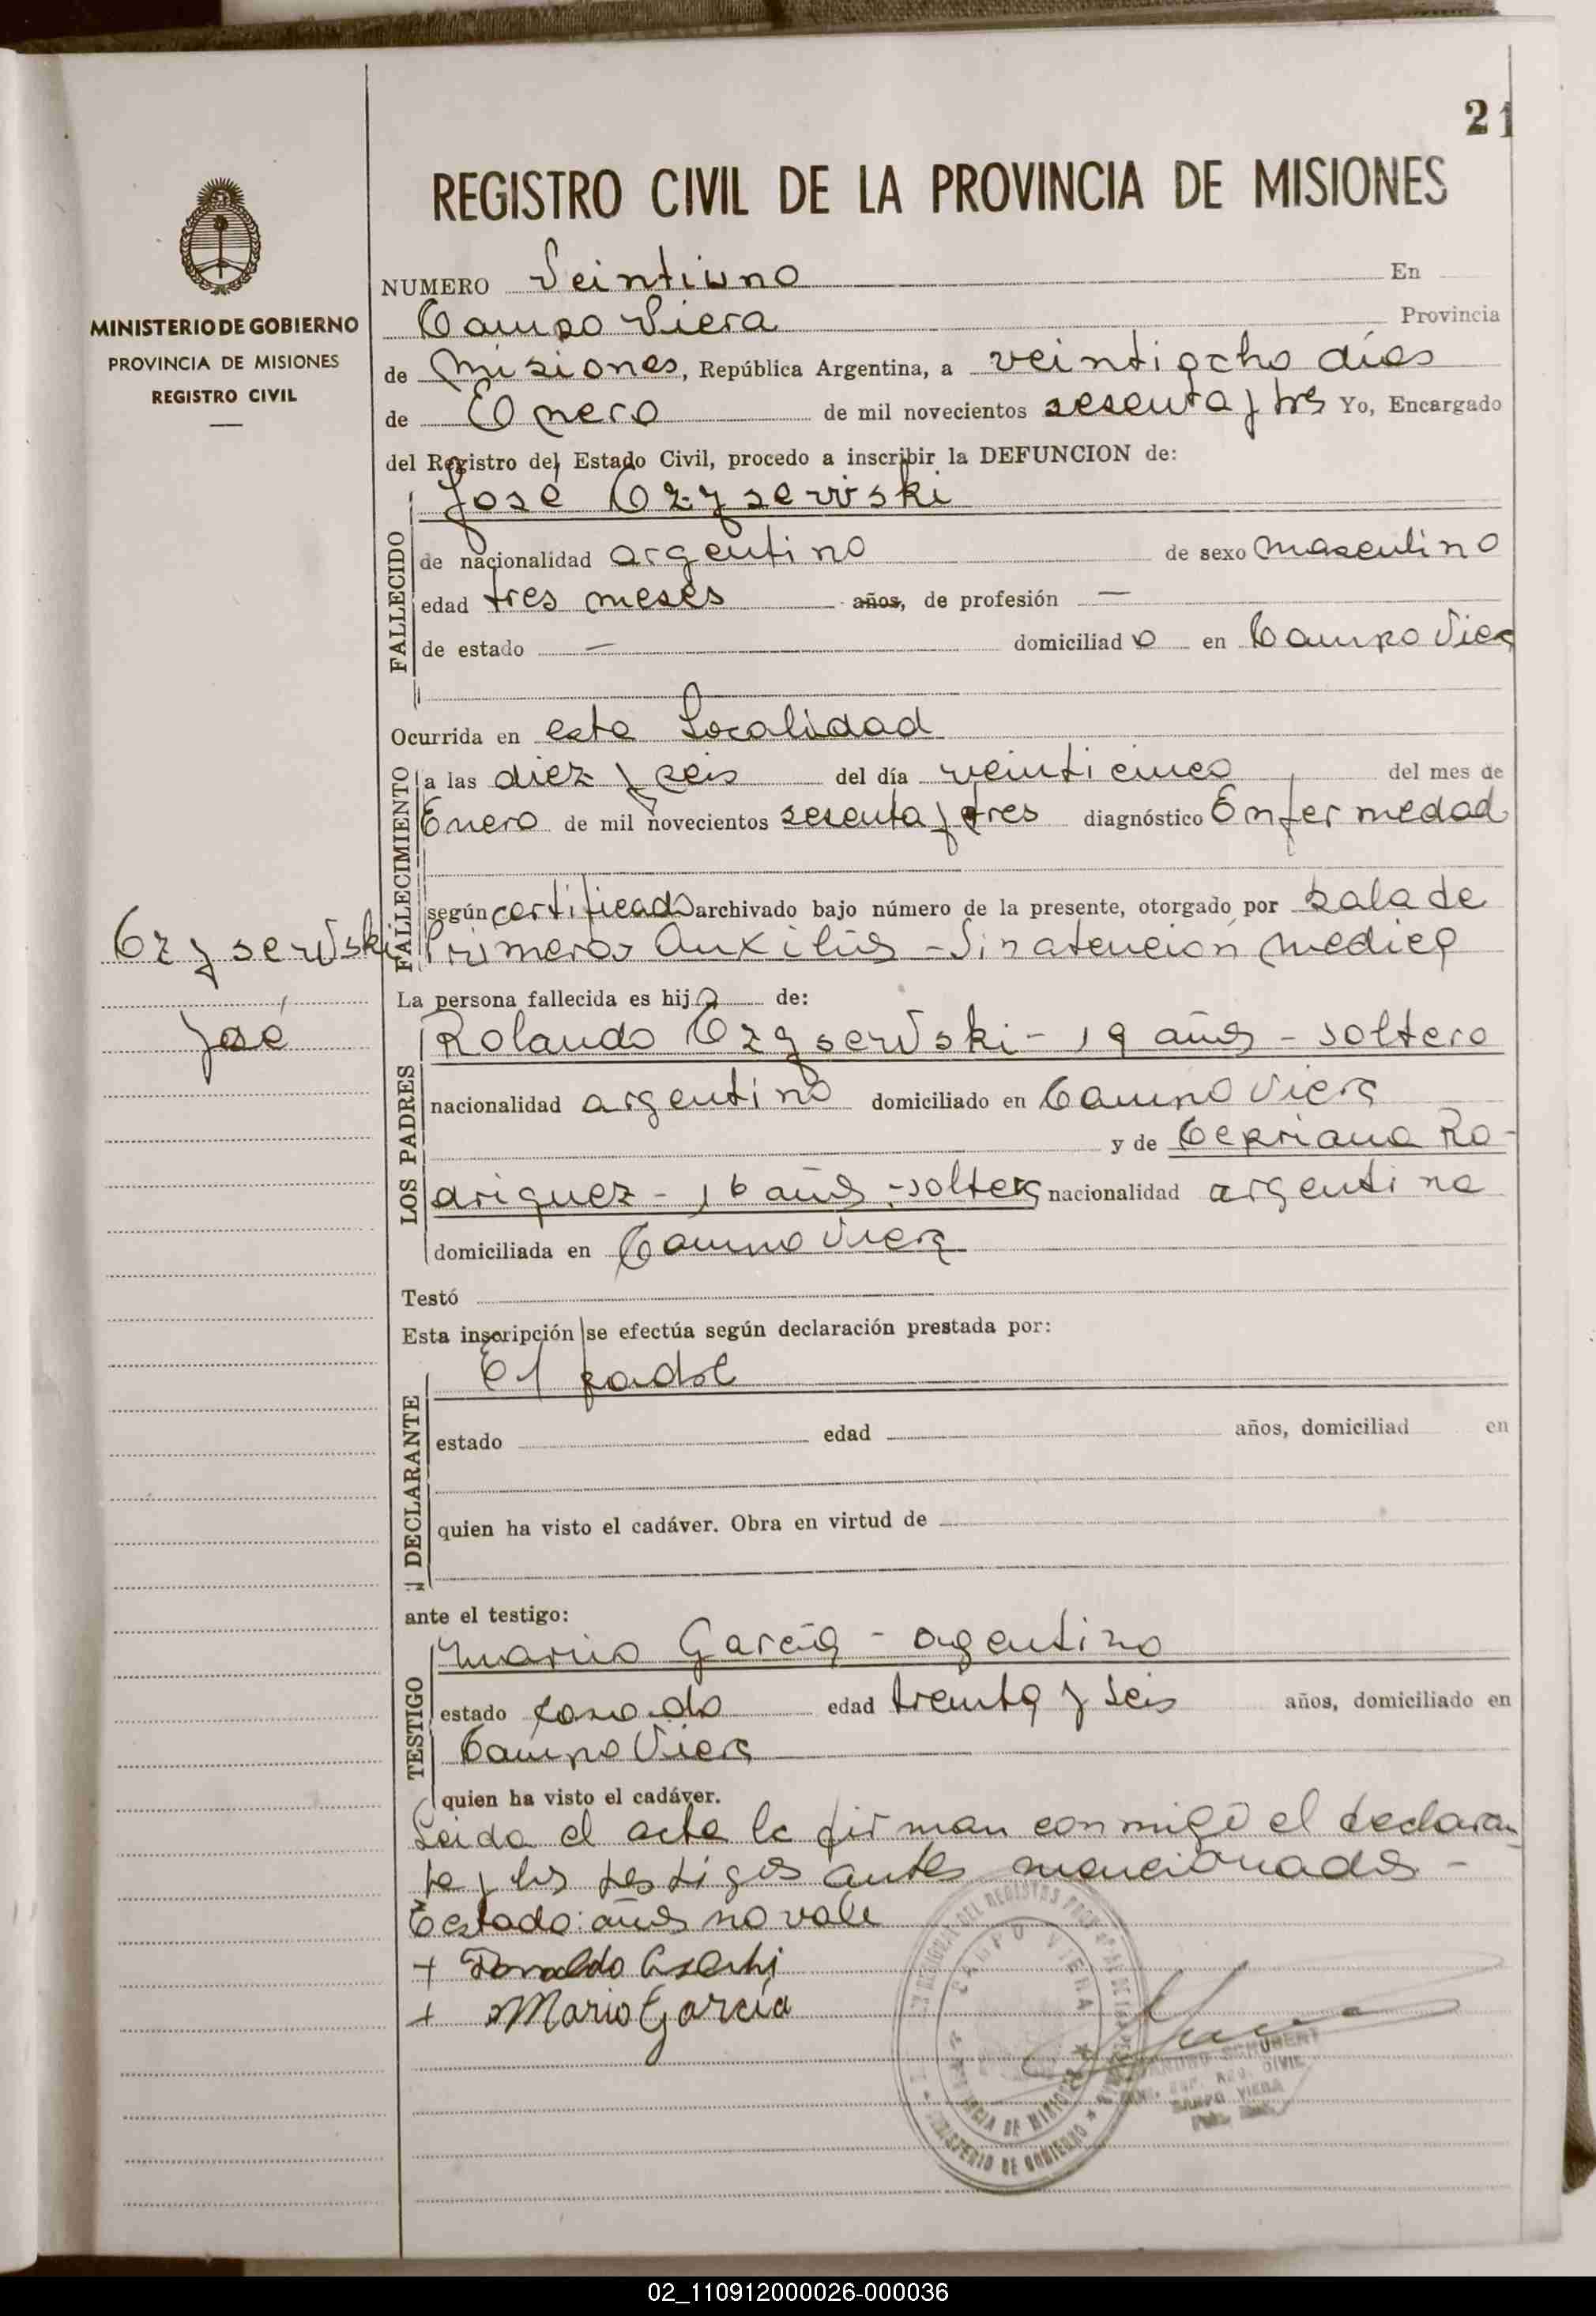 21
REGISTRO CIVIL DE LA PROVINCIA DE MISIONES
MINISTERIO DE GOBIERNO
PROVINCIA DE MISIONES
REGISTRO CIVIL
NUMERO Veintiuno En
Campo Viera Provincia
de Misiones, República Argentina, a veintiocho días
de Enero de mil novecientos sesenta y tres Yo, Encargado
del Registro del Estado Civil, procedo a inscribir la DEFUNCION de:
José Czyserwski
FALLECIDO
de nacionalidad argentino de sexo masculino
edad tres meses años, de profesión —
de estado — domiciliado en Campo Viera
Ocurrida en esta Localidad
FALLECIMIENTO
a las diez y seis del día veinticinco del mes de
Enero de mil novecientos sesenta y tres diagnóstico Enfermedad
según certificado archivado bajo número de la presente, otorgado por Sala de
Primeros Auxilios - Sin atención medica
Czyserwski
José
La persona fallecida es hijo de:
LOS PADRES
Rolando Czyserwski - 19 años - soltero
nacionalidad argentino domiciliado en Campo Viera
y de Cepriana Ro-
driguez - 16 años - soltera nacionalidad argentina
domiciliada en Campo Viera
Testó
Esta inscripción se efectúa según declaración prestada por:
El padre
DECLARANTE
estado edad años, domiciliad en
quien ha visto el cadáver. Obra en virtud de
ante el testigo:
TESTIGO
Mario García - argentino
estado casado edad treinta y seis años, domiciliado en
Campo Viera
quien ha visto el cadáver.
Leida el acta la firman conmigo el declaran
te y los testigos antes mencionados -
Testado: años no vale
+
+ Mario García
CAMPO VIERA
PROVINCIA DE MISIONES
MINISTERIO DE GOBIERNO
SCHUBERT
REG. CIVIL
CAMPO VIERA
02_110912000026-000036